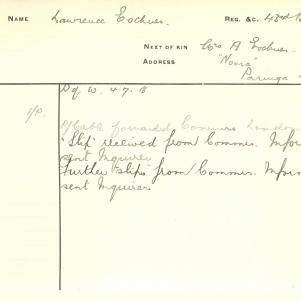 NAME Lawrence Eschner. REG. &C. 43rd
NEXT OF KIN Mrs A Eschner.
ADDRESS "Noora"
Paringa
D of W. 4-7-18
O/Cable forwarded Commrs London
"Slip" received from Commrs. Infor
sent Inquirer
Further "slips" from Commrs. Inform
sent Inquirers